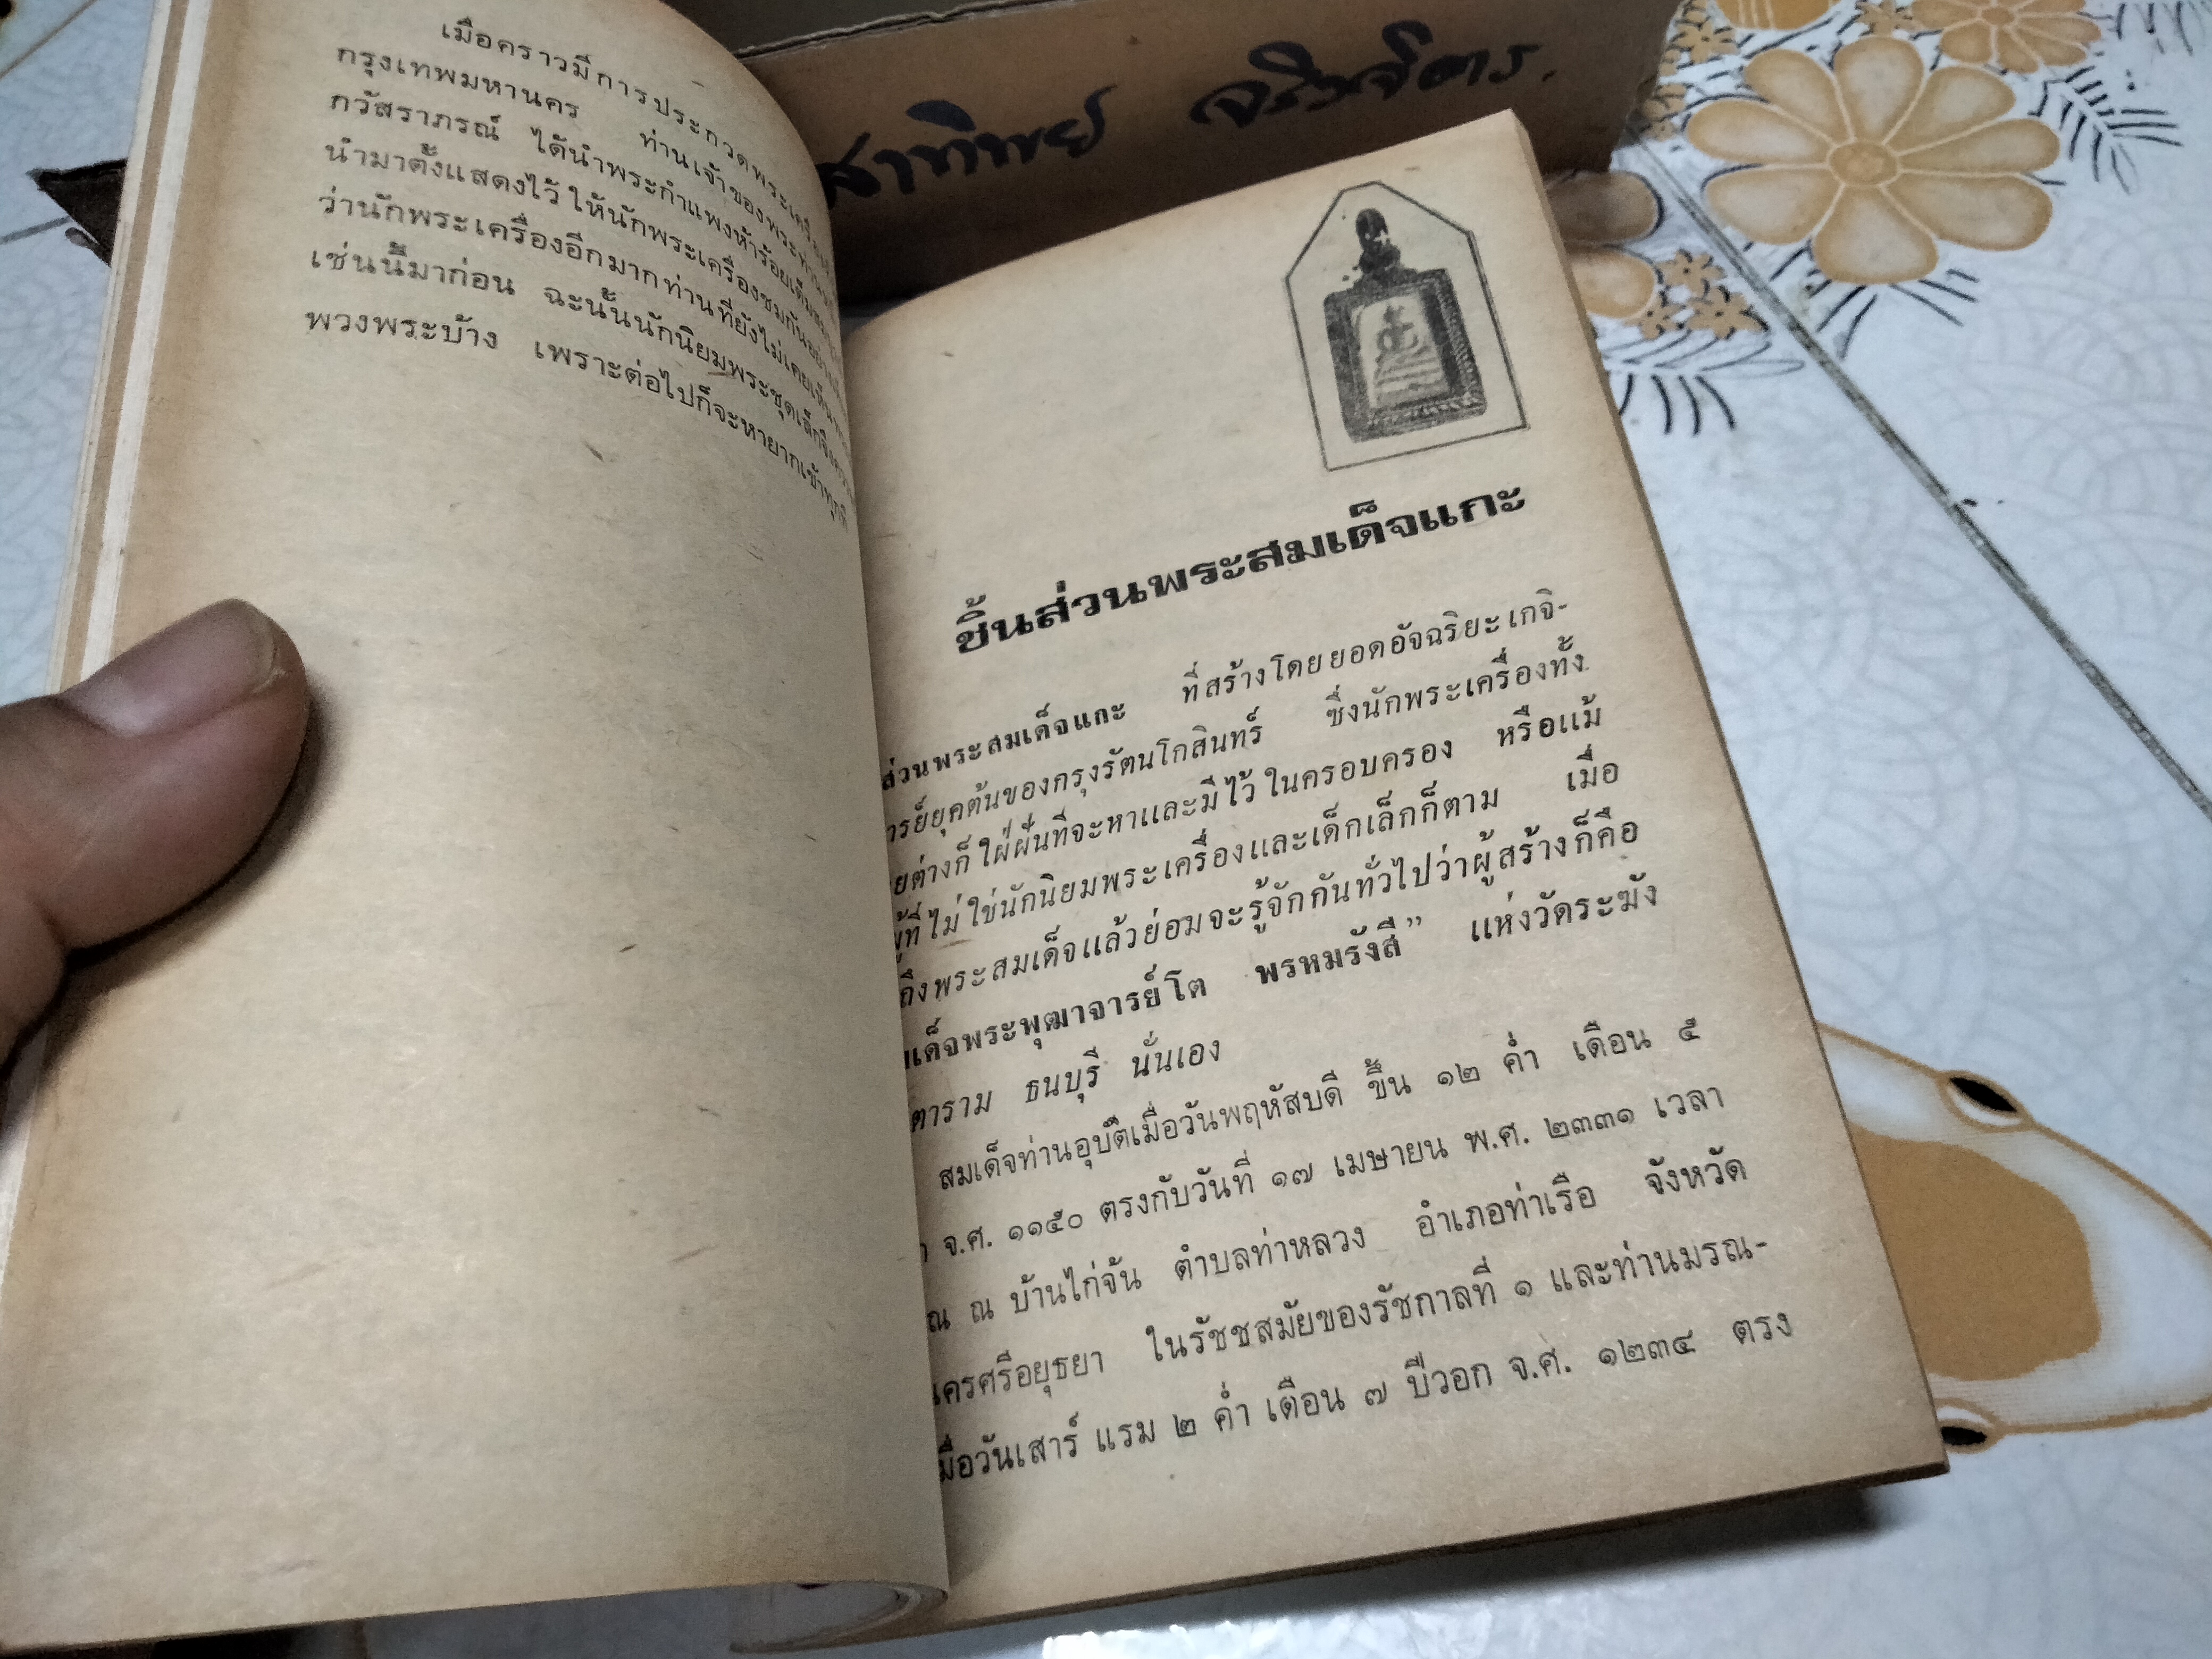 เมื่อคราวมีการประกวดพระเครื่อง
กรุงเทพมหานคร ท่านเจ้าของพระ
กวัสราภรณ์ ได้นำพระกำแพงห้าร้อยเต็ม
นำมาตั้งแสดงไว้ให้นักพระเครื่องชมกัน
ว่านักพระเครื่องอีกมากท่านที่ยังไม่เคยเห็น
เช่นนี้มาก่อน ฉะนั้นนักนิยมพระชุดเล็กจึง
พวงพระบ้าง เพราะต่อไปก็จะหายากเข้าทุกที
สาทิพย์
ชิ้นส่วนพระสมเด็จแกะ
ส่วนพระสมเด็จแกะ ที่สร้างโดยยอดอัจฉริยะเกจิ-
ารย์ยุคต้นของกรุงรัตนโกสินทร์ ซึ่งนักพระเครื่องทั้ง
ยต่างก็ใฝ่ฝันที่จะหาและมีไว้ในครอบครอง หรือแม้
ผู้ที่ไม่ใช่นักนิยมพระเครื่องและเด็กเล็กก็ตาม เมื่อ
ถึงพระสมเด็จแล้วย่อมจะรู้จักกันทั่วไปว่าผู้สร้างก็คือ
มเด็จพระพุฒาจารย์โต พรหมรังสี” แห่งวัดระฆัง
ตาราม ธนบุรี นั่นเอง
สมเด็จท่านอุบัติเมื่อวันพฤหัสบดี ขึ้น ๑๒ ค่ำ เดือน ๕
จ.ศ. ๑๑๕๐ ตรงกับวันที่ ๑๗ เมษายน พ.ศ. ๒๓๓๑ เวลา
ณ ณ บ้านไก่จ้น ตำบลท่าหลวง อำเภอท่าเรือ จังหวัด
นครศรีอยุธยา ในรัชชสมัยของรัชกาลที่ ๑ และท่านมรณ-
มื่อวันเสาร์ แรม ๒ ค่ำ เดือน ๗ ปีวอก จ.ศ. ๑๒๓๔ ตรง